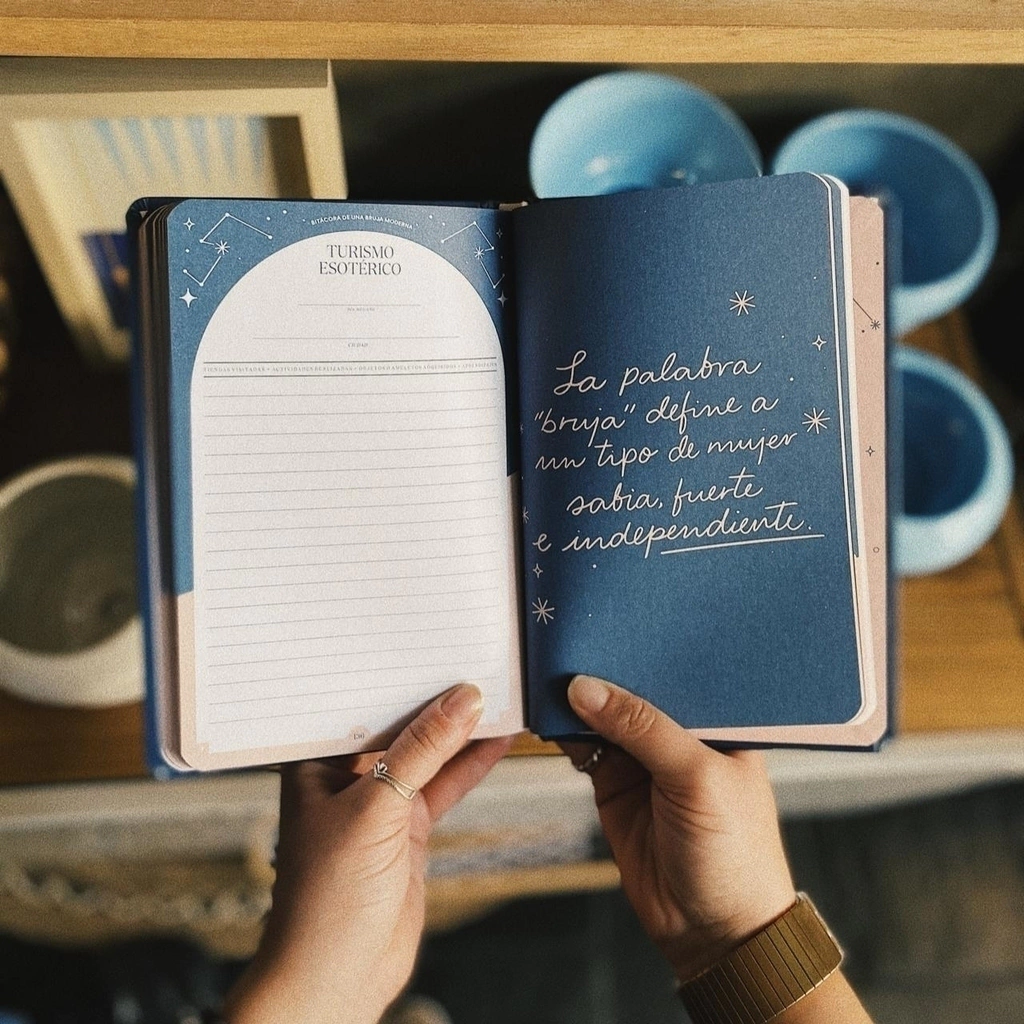 BITÁCORA DE UNA BRUJA MODERNA
TURISMO
ESOTÉRICO
CIUDAD
TIENDAS VISITADAS • ACTIVIDADES REALIZADAS • OBJETOS O AMULETOS ADQUIRIDOS • APRENDIZAJES
130
La palabra
"bruja" define a
un tipo de mujer
sabia, fuerte
e independiente.